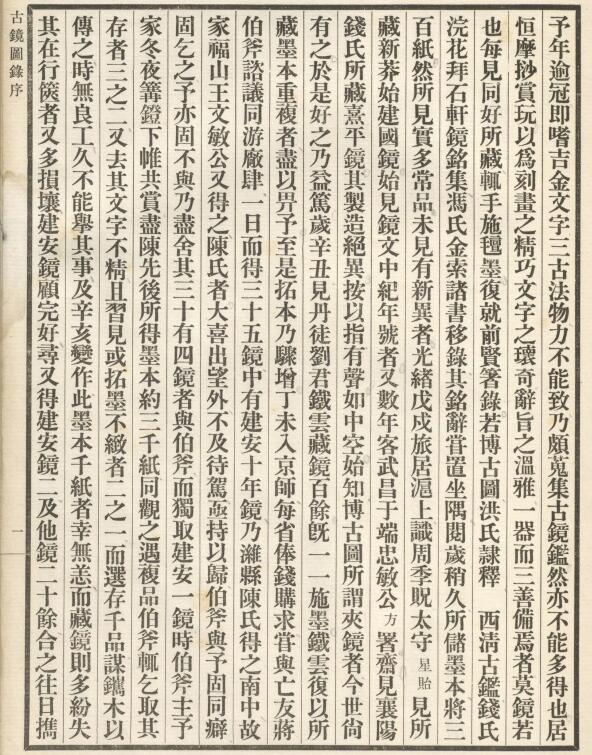 古鏡圖錄序
予年逾冠即嗜吉金文字三古法物力不能致乃頗蒐集古鏡鑑然亦不能多得也居
恒摩挱賞玩以爲刻畫之精巧文字之瓌奇辭旨之溫雅一器而三善備焉者莫鏡若
也每見同好所藏輒手施氊墨復就前賢箸錄若博古圖洪氏隸釋　西淸古鑑錢氏
浣花拜石軒鏡銘集馮氏金索諸書移錄其銘辭甞置坐隅閱歲稍久所儲墨本將三
百紙然所見實多常品未見有新異者光緒戊戌旅居滬上識周季貺太守星貽見所
藏新莽始建國鏡始見鏡文中紀年號者又數年客武昌于端忠敏公方署齋見襄陽
錢氏所藏熹平鏡其製造絕異按以指有聲如中空始知博古圖所謂夾鏡者今世尙
有之於是好之乃益篤歲辛丑見丹徒劉君鐵雲藏鏡百餘旣一一施墨鐵雲復以所
藏墨本重複者盡以畀予至是拓本乃驟增丁未入京師每省俸錢購求甞與亡友蔣
伯斧諮議同游廠肆一日而得三十五鏡中有建安十年鏡乃濰縣陳氏得之南中故
家福山王文敏公又得之陳氏者大喜出望外不及待駕亟持以歸伯斧與予固同癖
固乞之予亦固不與乃盡舍其三十有四鏡者與伯斧而獨取建安一鏡時伯斧主予
家冬夜篝鐙下帷共賞盡陳先後所得墨本約三千紙同觀之遇複品伯斧輒乞取其
存者三之二又去其文字不精且習見或拓墨不緻者二之一而選存千品謀鐫木以
傳之時無良工久不能舉其事及辛亥變作此墨本千紙者幸無恙而藏鏡則多紛失
其在行篋者又多損壞建安鏡顧完好尋又得建安鏡二及他鏡二十餘合之往日攜
一